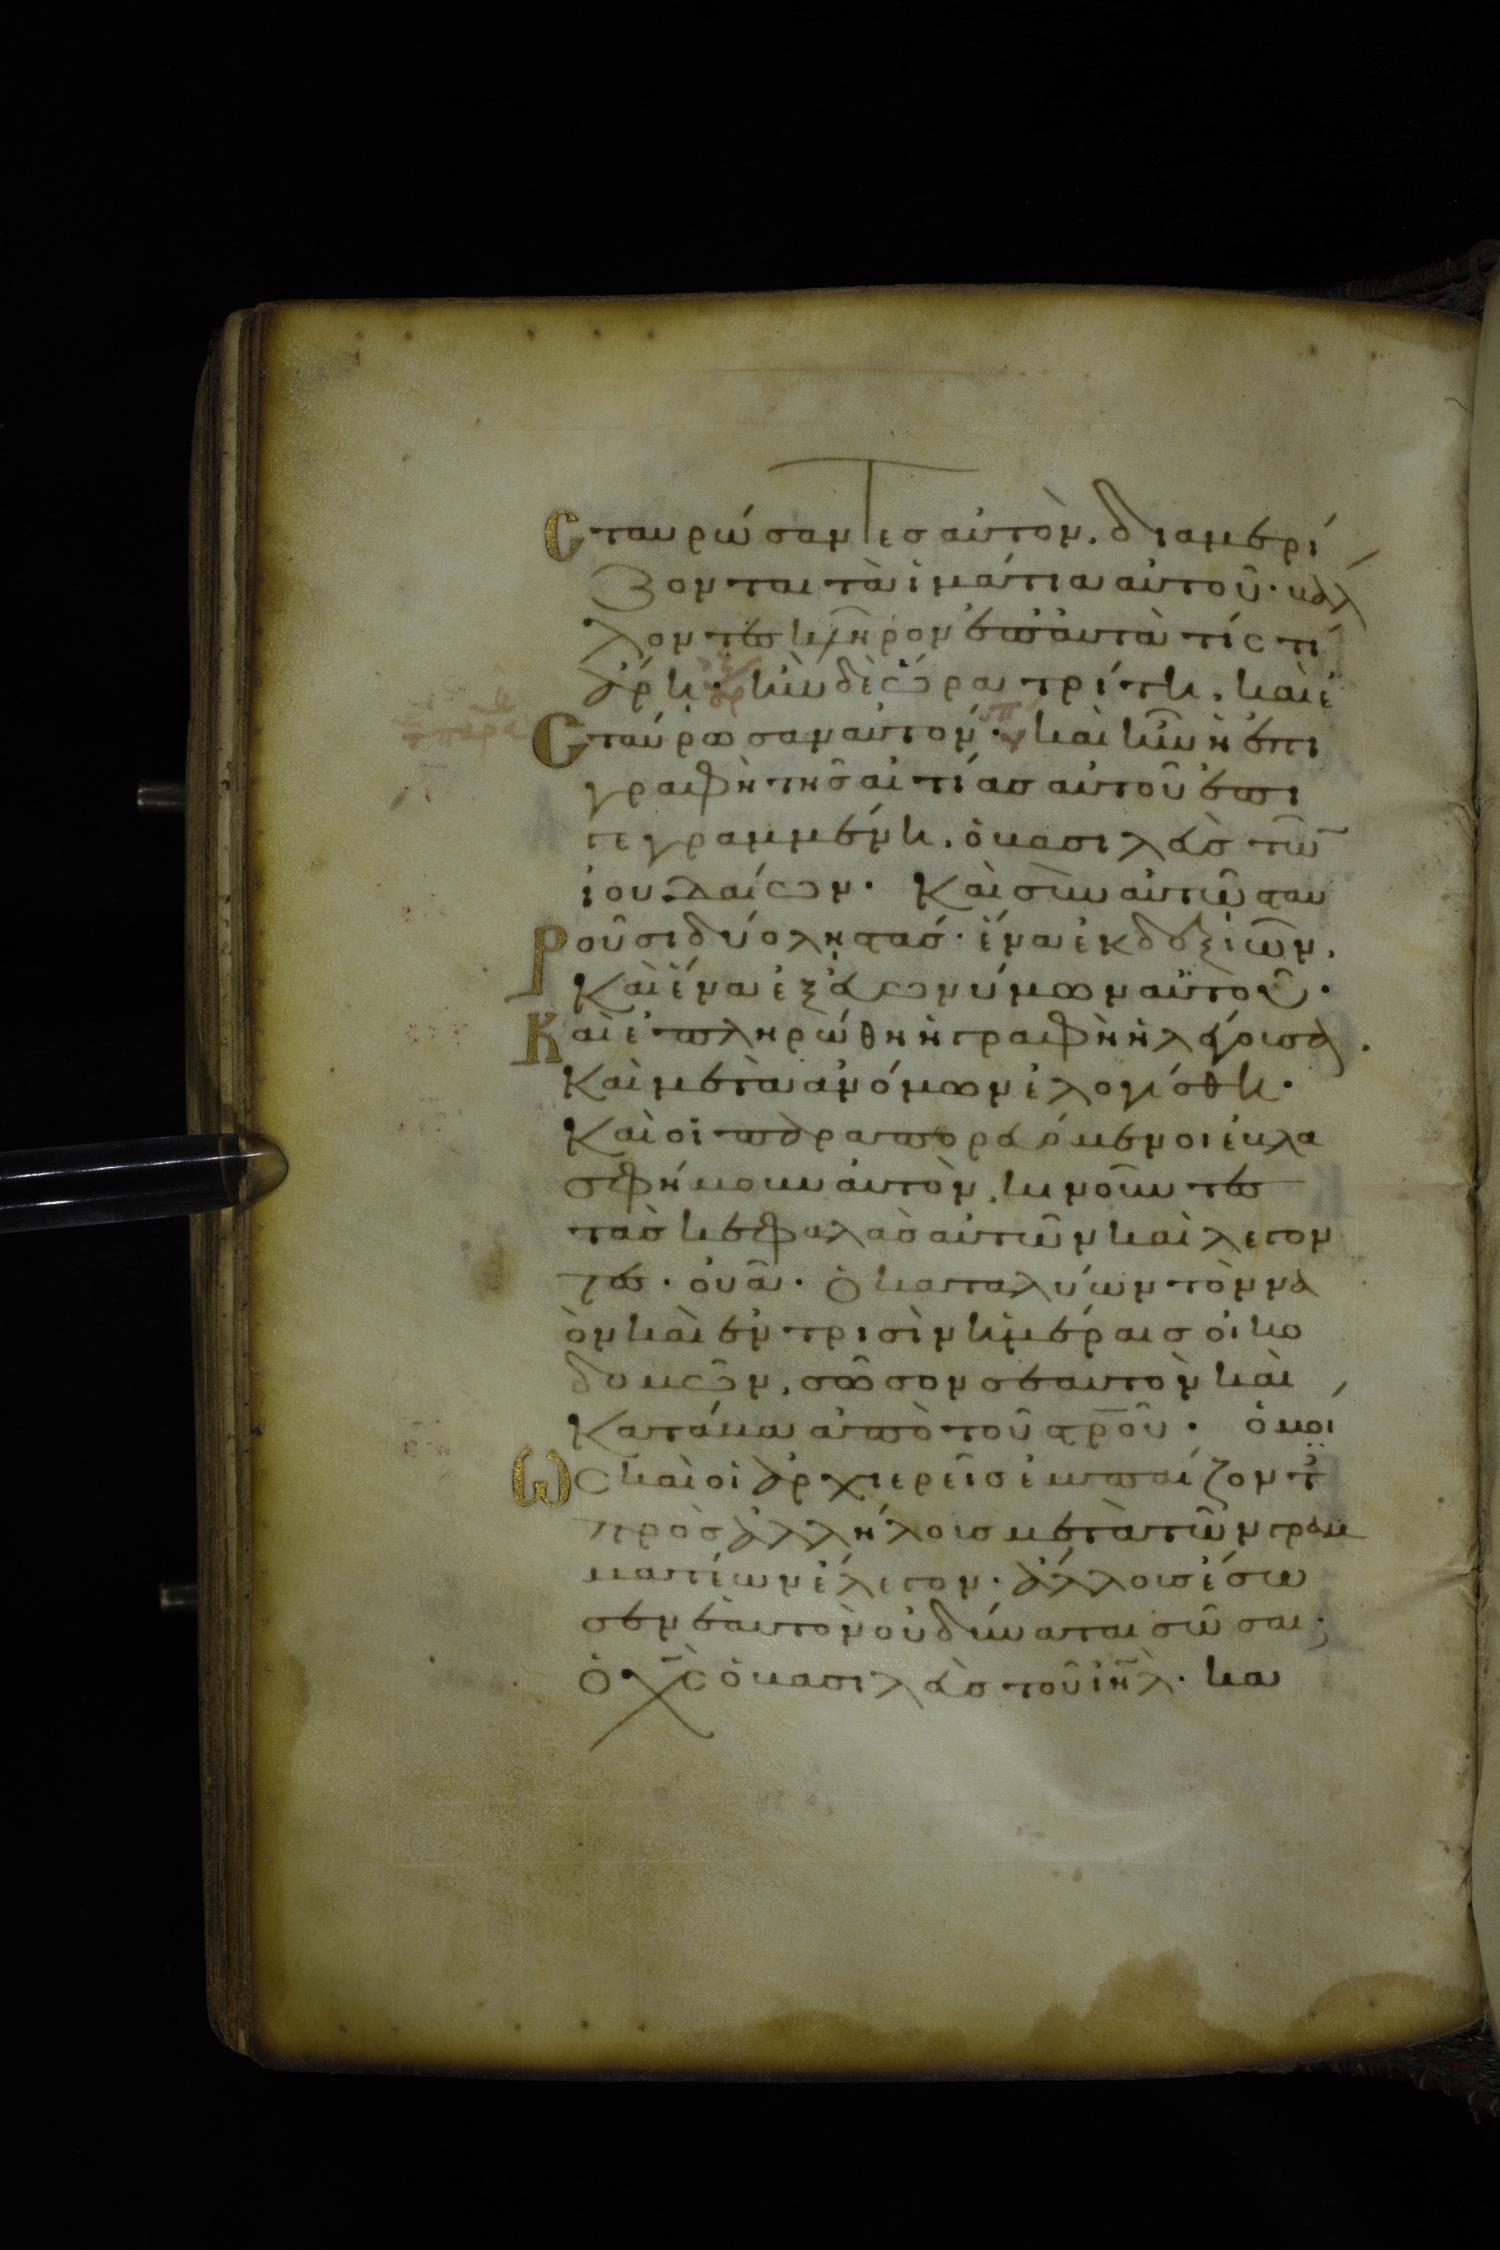 Σταυρώσαντες αὐτὸν. διαμερί
ζονται τὰ ἱμάτια αὐτοῦ· βάλ
λοντες κλῆρον ἐπ' αὐτὰ τίς τί
ἄρη· ἦν δὲ ὥρα τρίτη, καὶ ἐ
Σταύρωσαν αὐτόν· καὶ ἦν ἡ ἐπι
γραφὴ τῆς αἰτίας αὐτοῦ ἐπι
γεγραμμένη. ὁ βασιλεὺς τῶ
ἰουδαίων. Καὶ σὺν αὐτῶ σταυ
Ροῦσι δύο ληστάς· ἕνα ἐκ δεξιῶν,
Καὶ ἕνα ἐξ εὐωνύμων αὐτοῦ.
Καὶ ἐπληρώθη ἡ γραφὴ ἡ λέγουσα.
Καὶ μετὰ ἀνόμων ἐλογίσθη.
Καὶ οἱ παραπορευόμενοι ἐβλα
σφήμουν αὐτὸν, κινοῦντες
τὰς κεφαλὰς αὐτῶν καὶ λέγον
τες. οὐᾶ. ὁ καταλύων τὸν να
ὸν καὶ ἐν τρισὶν ἡμέραις οἰκο
δομῶν, σῶσον σεαυτὸν καὶ
Κατάβα ἀπὸ τοῦ στροῦ. ὁμοί
Ως καὶ οἱ ἀρχιερεῖς ἐμπαίζοντ
πρὸς ἀλλήλοις μετὰ τῶν γραμ
ματέων ἔλεγον. ἄλλους ἔσω
σεν ἑαυτὸν οὐ δύναται σῶσαι;
ὁ χς ὁ βασιλεὺς τοῦ ιηλ. κα